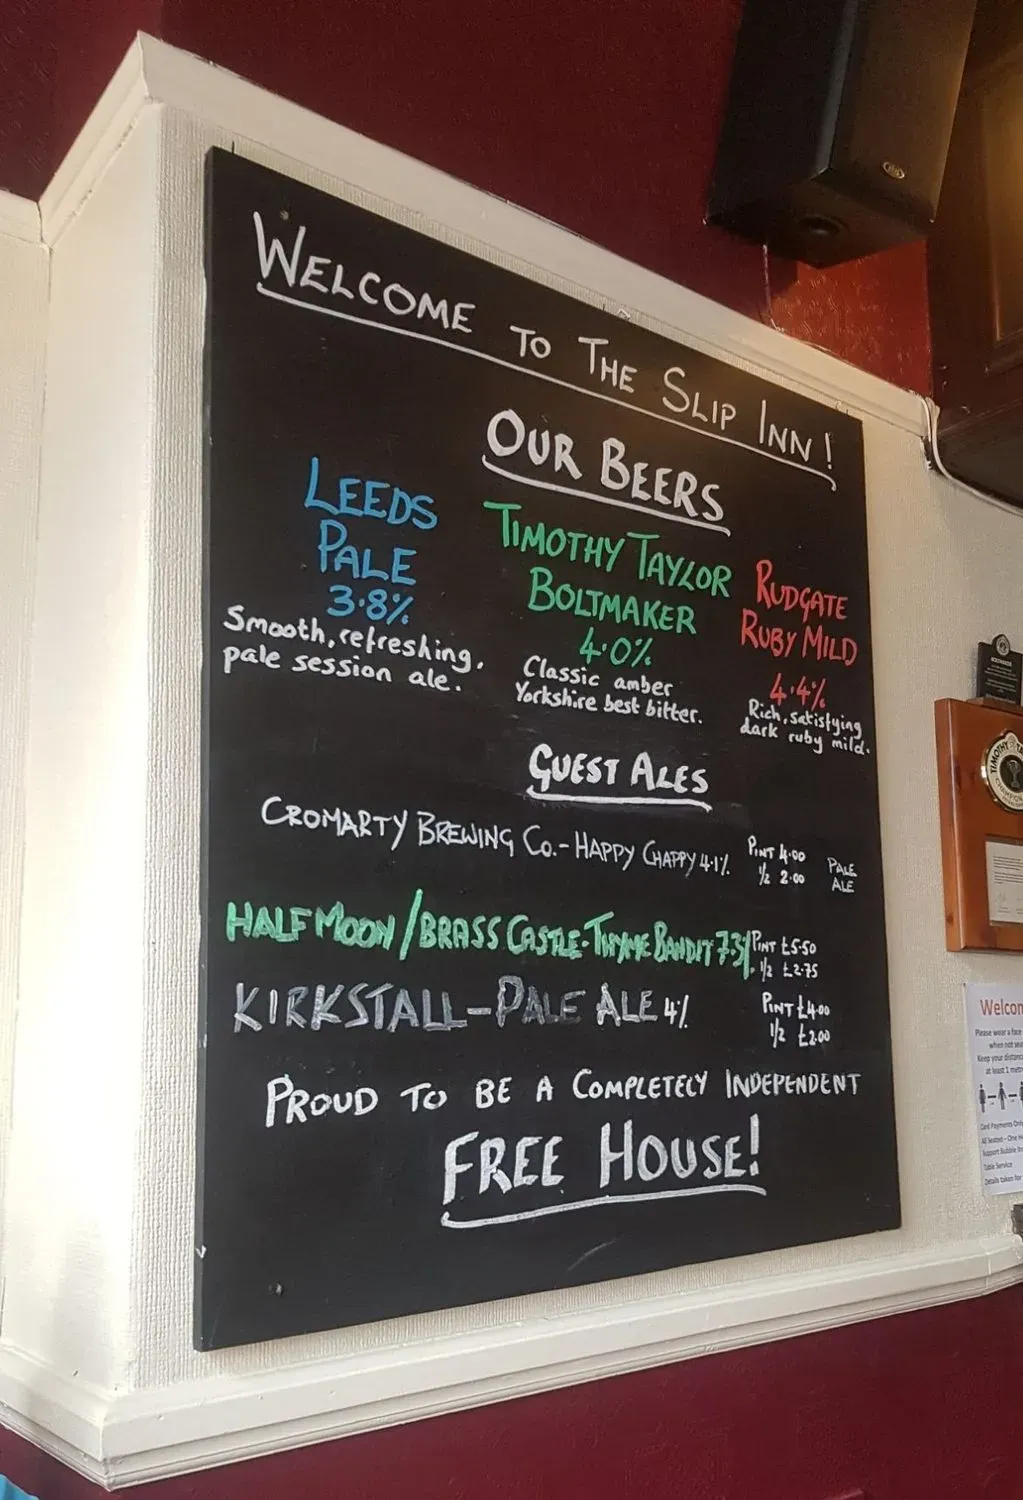 WELCOME TO THE SLIP INN!
OUR BEERS
LEEDS
PALE
3.8%
Smooth, refreshing,
pale session ale.
TIMOTHY TAYLOR
BOLTMAKER
4.0%
Classic amber
Yorkshire best bitter.
RUDGATE
RUBY MILD
4.4%
Rich, satisfying
dark ruby mild.
GUEST ALES
CROMARTY BREWING CO. - HAPPY CHAPPY 4.1%
PINT 4.00
1/2 2.00
PALE
ALE
HALF MOON/BRASS CASTLE - THYME BANDIT 7.3%
PINT £5.50
1/2 £2.75
KIRKSTALL - PALE ALE 4%
PINT £4.00
1/2 £2.00
PROUD TO BE A COMPLETELY INDEPENDENT
FREE HOUSE!
TIMOTHY
Please wear a face
when not
Keep your
at least 1
Table Service
Details taken for